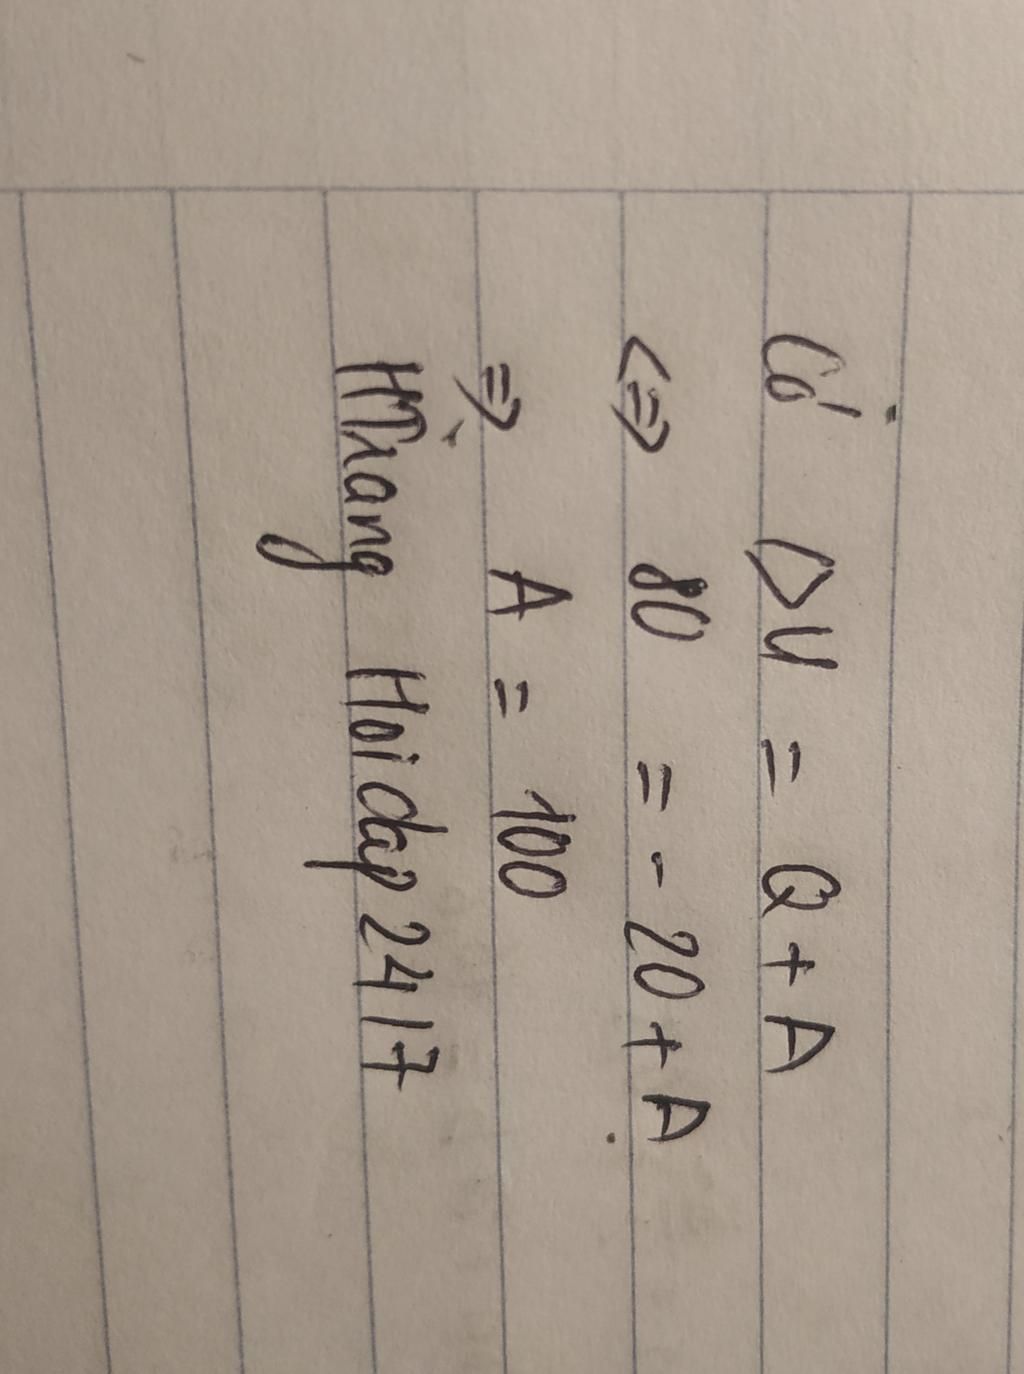 Có ΔU = Q + A
<=> 80 = - 20 + A
=> A = 100
HTrang Hoidap2417